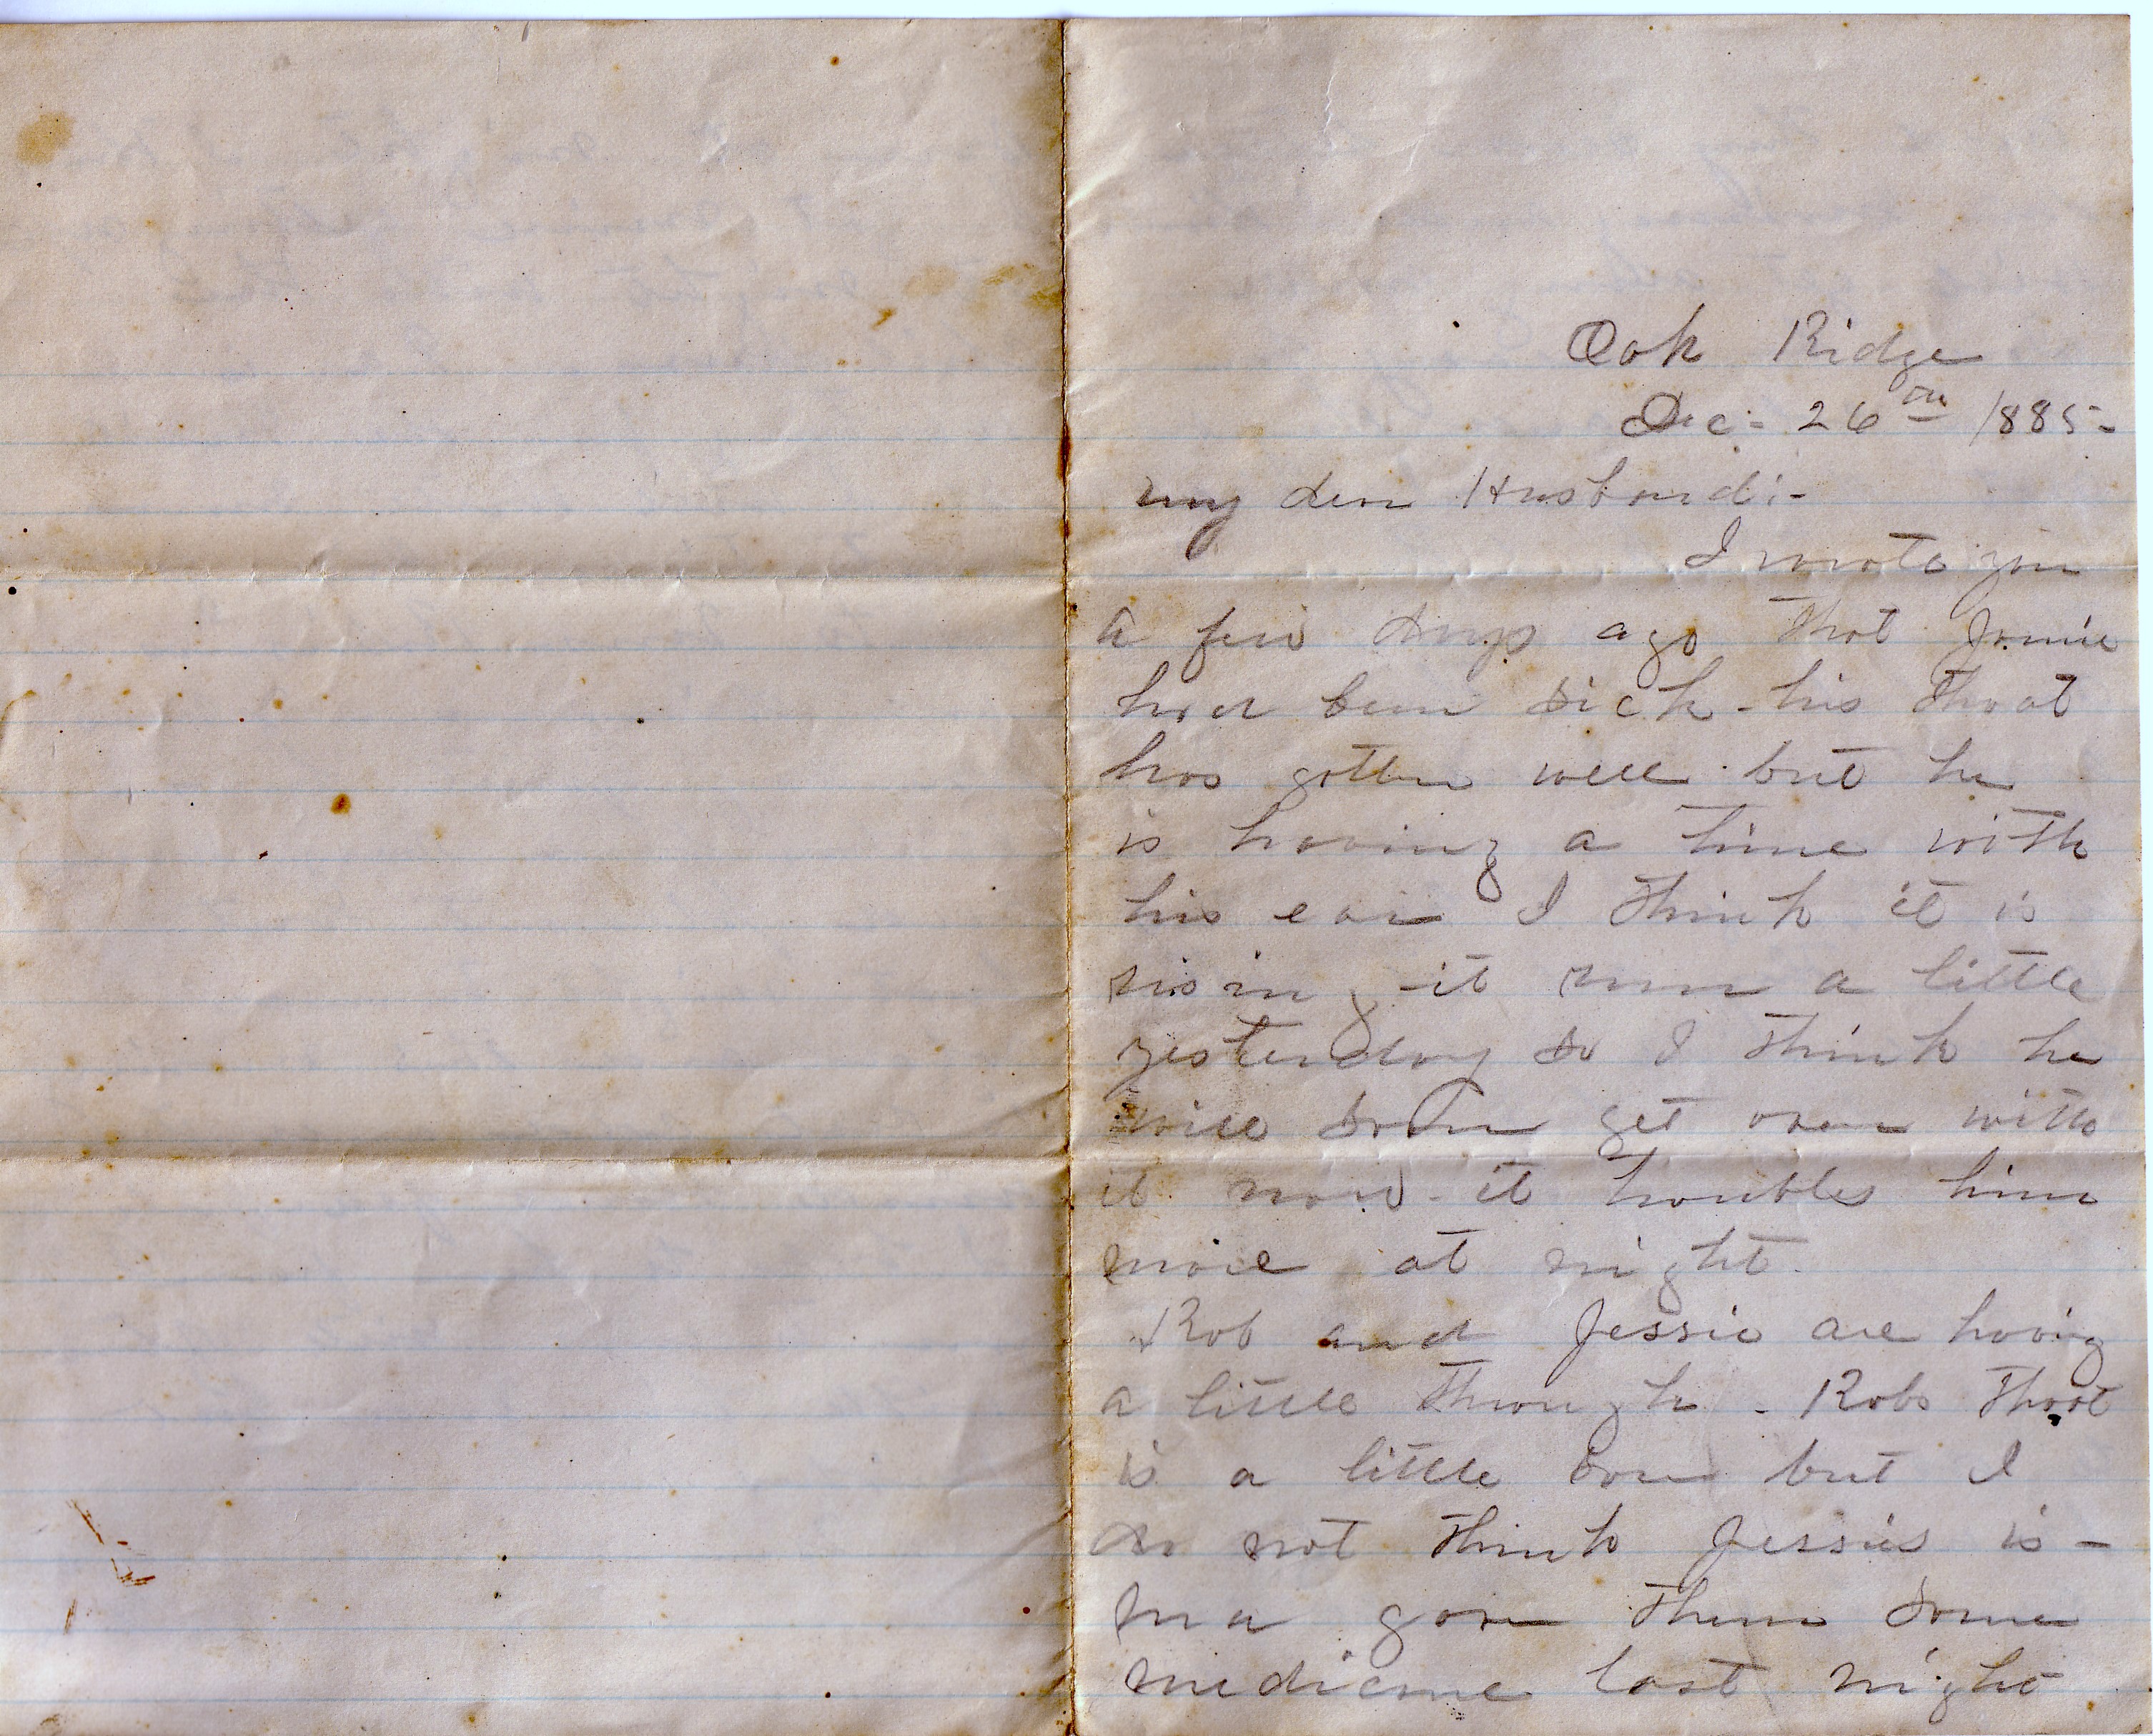 Oak Ridge
Dec - 26th 1885 -
My dear Husband :-
I wrote you
a few days ago that Jamie
had been sick - his throat
has gotten well but he
is having a time with
his ear I think it is
rising - it run a little
yesterday so I think he
will soon get over with
it now - it troubles him
more at night.
Rob and Jessie are having
a little though - Robs throat
is a little sore but I
do not think Jessies is -
Ma gave them some
medicine last night